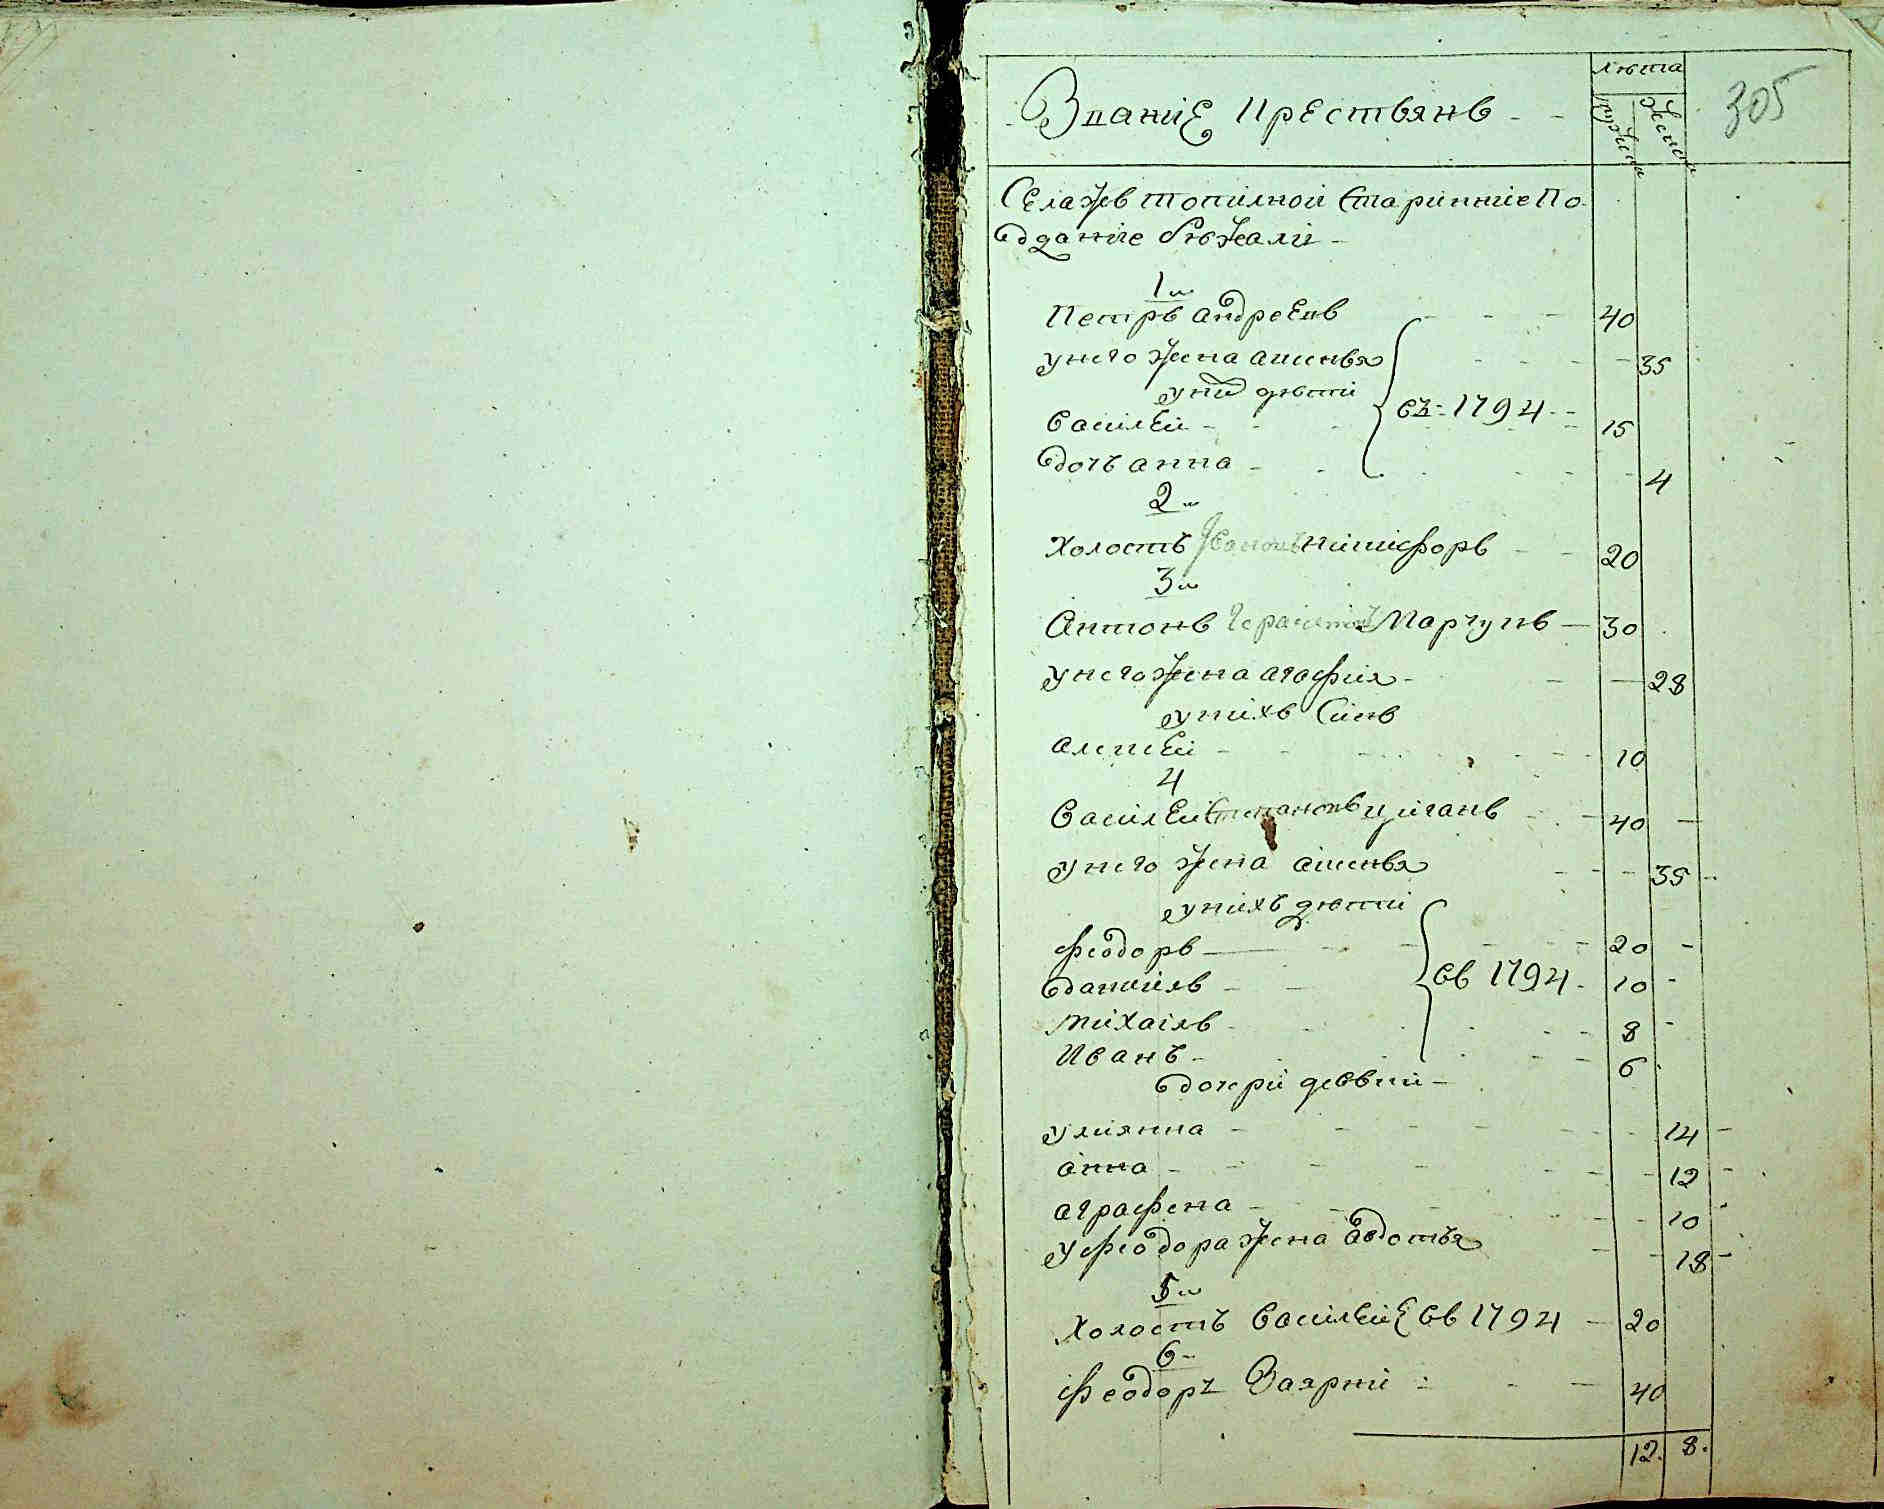 Званиė крестьянъ
лѣта
мужеска
женска
305
Села жъ топилной Старинние По
дданіе бѣжали
1й
Петръ андреевъ 40
у него жена аксинья 35
у них дѣти
василеи съ 1794 15
дочь анна 4
2й
Холостъ никифоръ 20
3й
Антонъ Марчукъ 30
у него жена агафия 28
у нихъ Синъ
алексеи 10
4
василеи Степановъ циганъ 40
у него жена аксинья 35
у нихъ дѣти
Феодоръ 20
даниилъ въ 1794 10
михаилъ 8
Иванъ 6
дочери девки
улиянна 14
анна 12
аграфена 10
у Феодора жена авдотья 18
5й
Холостъ василеи въ 1794 20
6
Феодоръ Заярни 40
12. 8.